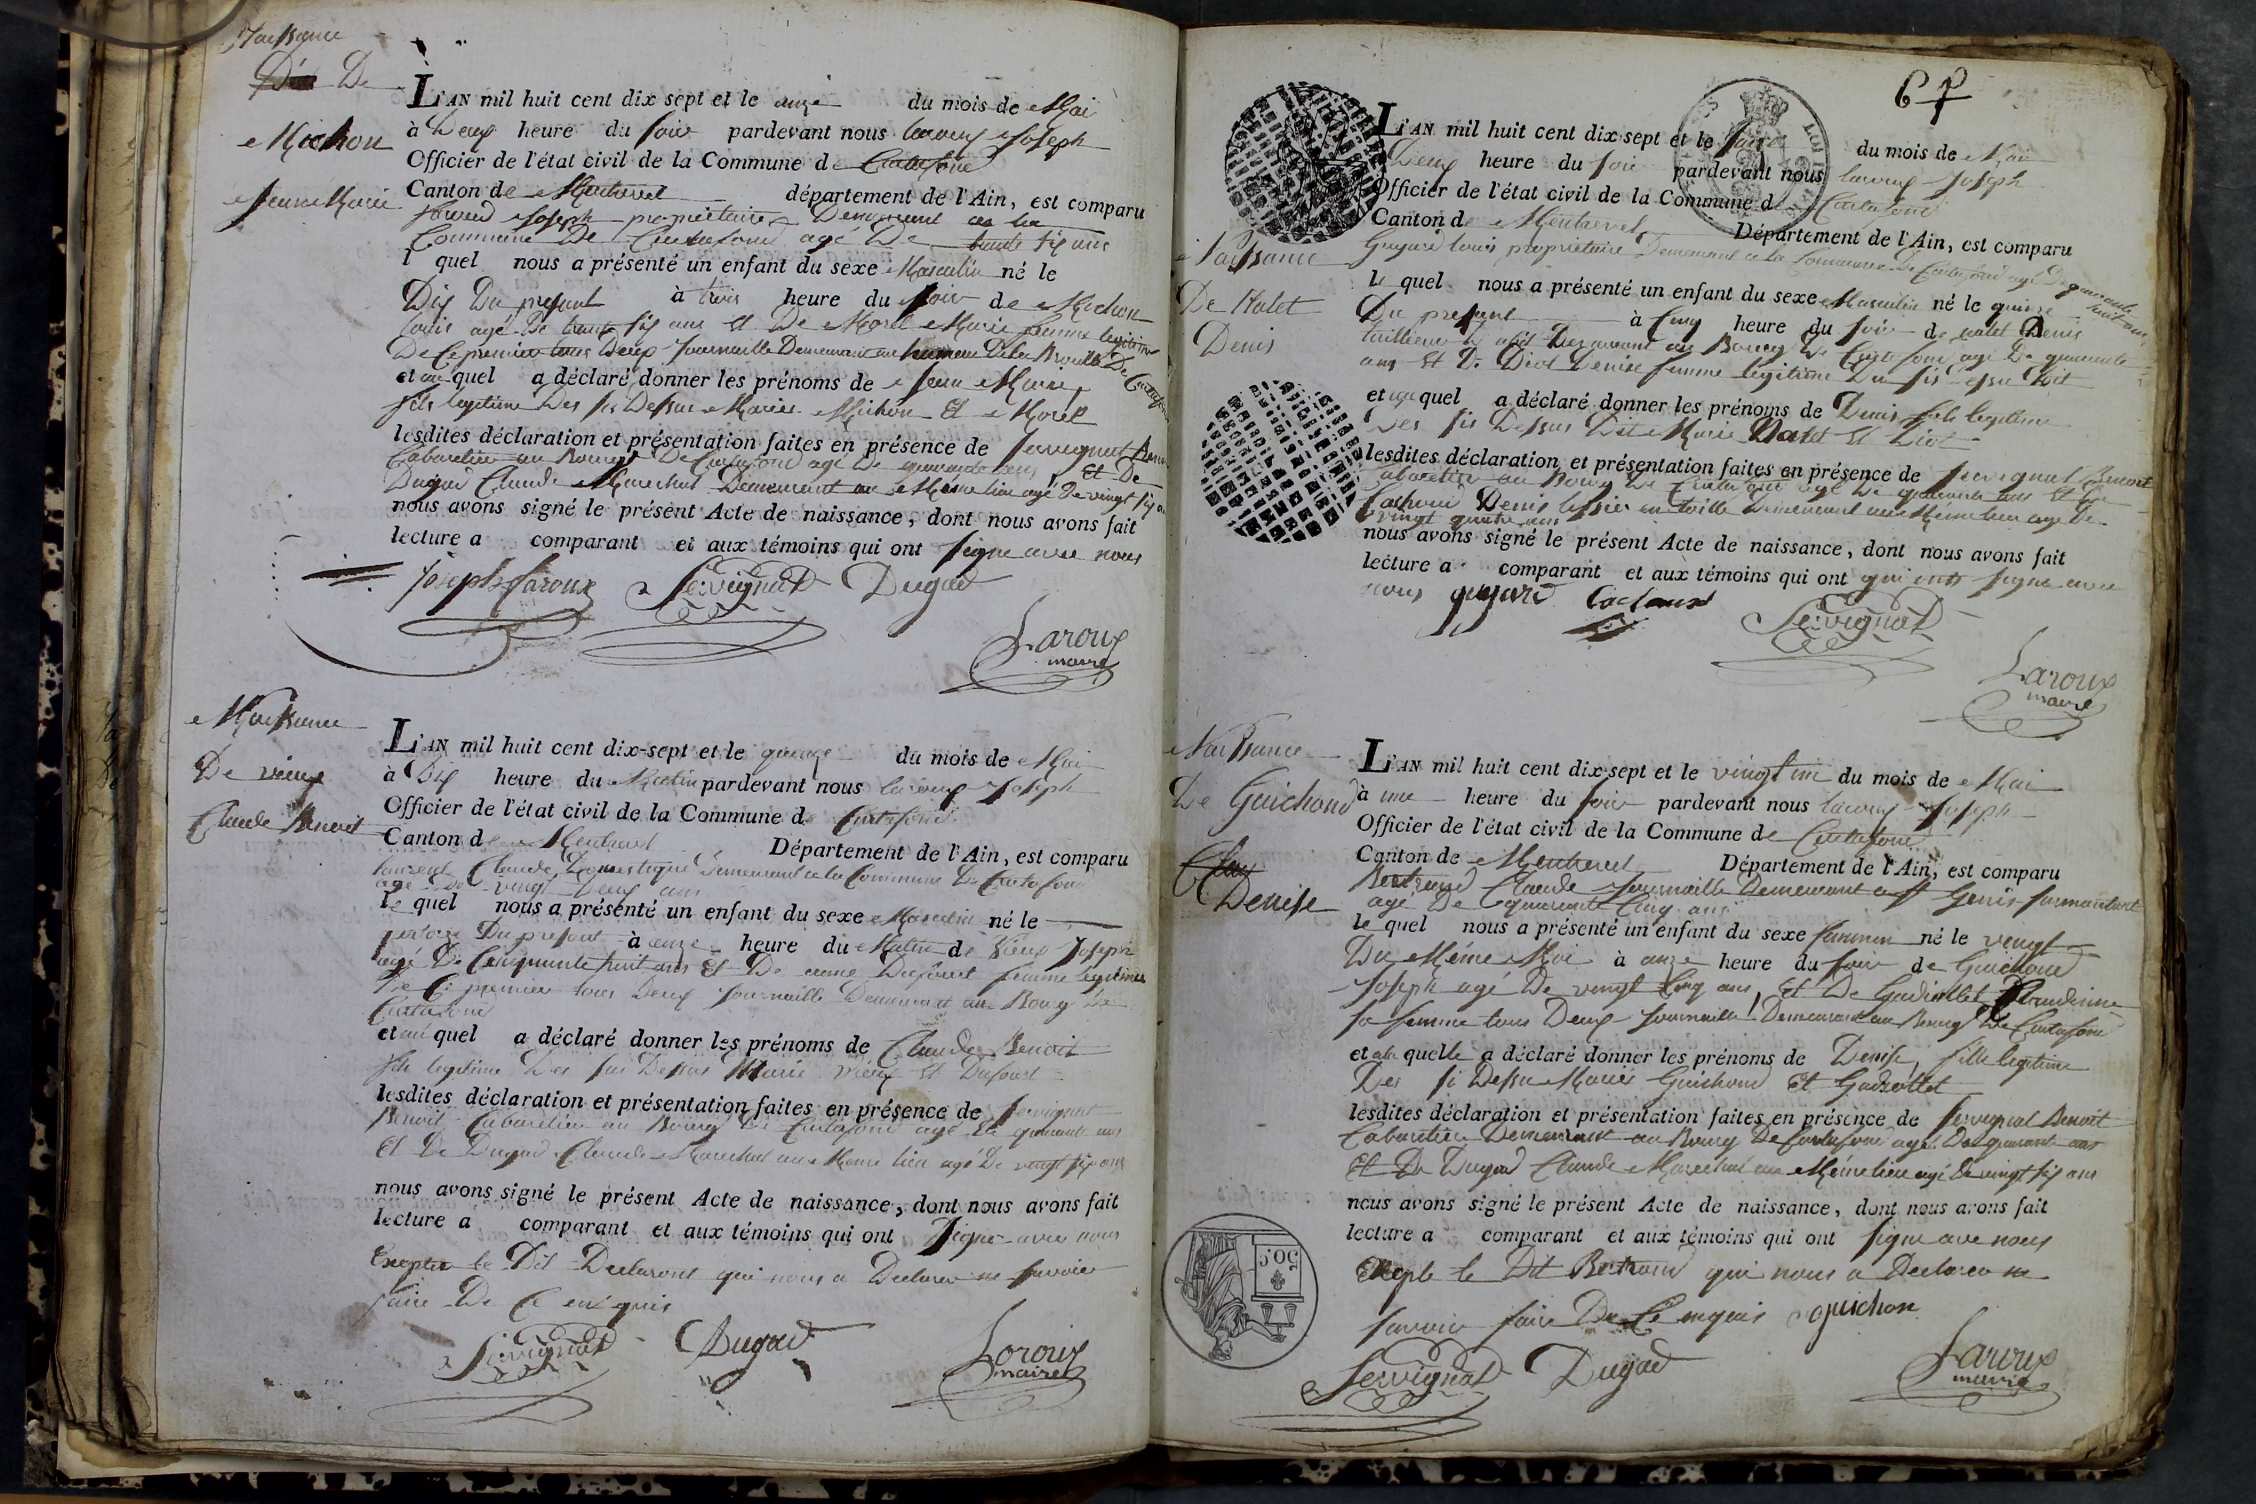 Naissance
De
Michon
Jean Marie
L'AN mil huit cent dix sept et le onze du mois de Mai
à Deux heure du soir pardevant nous laroux Joseph
Officier de l'état civil de la Commune de Curtafond
Canton de Montrevel département de l'Ain, est comparu
Joseph propriétaire Demeurant a la
Commune De Curtafond agé De trente six ans
l quel nous a présenté un enfant du sexe Masculin né le
Dix Du présent à trois heure du soir de Michon
louis agé De trente six ans et De Morel Marie femme legitime
De Ce premier tous Deux Journaille Demeurant au hameau De la De Curtafond
et au quel a déclaré donner les prénoms de Jean Marie
fils legitime Des sis Dessus Mariés Michon Et Morel
lesdites déclaration et présentation faites en présence de servignat Benoit
Cabaretier au Bourg De Curtafond agé De quarante ans Et De
Dugad Claude Marechal Demeurant au Même lieu agé De vingt six ans
nous avons signé le présent Acte de naissance, dont nous avons fait
lecture a comparant et aux témoins qui ont signé avec nous
Joseph Laroux Servignat Dugad
Laroux
maire
Naissance
De vieux
Claude Benoit
L'AN mil huit cent dix-sept et le quinze du mois de Mai
à Dix heure du Matin pardevant nous laroux Joseph
Officier de l'état civil de la Commune de Curtafond
Canton de Montrevel Département de l'Ain, est comparu
Claude Domestique Demeurant a la Commune De Curtafond
agé De vingt Deux ans
le quel nous a présenté un enfant du sexe Masculin né le
Du présent à onze heure du Matin de Vieux Joseph
agé De Cinquante huit ans Et De Dufour femme legitime
De Ce premier tous Deux Journaille Demeurant au Bourg De
Curtafond
et au quel a déclaré donner les prénoms de Claude Benoit
fils legitime Des sus Dessus Marié vieux Et Dufour
lesdites déclaration et présentation faites en présence de servignat
Benoit Cabaretier au Bourg De Curtafond agé De quarante ans
Et De Dugad Claude Marechal au Même lieu agé De vingt six ans
nous avons signé le présent Acte de naissance, dont nous avons fait
lecture a comparant et aux témoins qui ont signé avec nous
Excepté le Dit Declarant qui nous a Declaré ne savoir
faire De Ce enquis
Servignat Dugad Laroux
maire
Naissance
De Nalet
Denis
L'AN mil huit cent dix-sept et le du mois de Mai
Deux heure du soir pardevant nous laroux Joseph
Officier de l'état civil de la Commune de Curtafond
Canton de Montrevel Département de l'Ain, est comparu
louis propriétaire Demeurant a la Commune De Curtafond agé De quarante huit ans
le quel nous a présenté un enfant du sexe Masculin né le quinze
Du présent à Cinq heure du soir de nalet Denis
tailleur Demeurant au Bourg De Curtafond agé De quarante
ans Et De Diot Denise femme legitime Du sis Dit
et au quel a déclaré donner les prénoms de Denis fils legitime
Des sis Dessus Dit Marie Nalet Et Diot
lesdites déclaration et présentation faites en présence de servignat Benoit
Cabaretier au Bourg De Curtafond agé De quarante ans Et De
Denis tissier en toille Demeurant au Même lieu agé De
vingt quatre ans
nous avons signé le présent Acte de naissance, dont nous avons fait
lecture a comparant et aux témoins qui ont qui ont signé avec
nous guyard Servignat
Laroux
maire
Naissance
De Guichond
Denise
L'AN mil huit cent dix-sept et le vingt un du mois de Mai
à une heure du soir pardevant nous laroux Joseph
Officier de l'état civil de la Commune de Curtafond
Canton de Montrevel Département de l'Ain, est comparu
Bertrand Claude Journaille Demeurant a St Genis
agé De quarante Cinq ans
le quel nous a présenté un enfant du sexe feminin né le vingt
Du Même Moi à onze heure du soir de Guichond
Joseph agé De vingt Cinq ans Et De Gadiollet Claudinne
sa femme tous Deux Journaille Demeurant au Bourg De Curtafond
et a la quelle a déclaré donner les prénoms de Denise fille legitime
Des si Dessu Mariés Guichond Et Gadiollet
lesdites déclaration et présentation faites en présence de servignat Benoit
Cabaretier Demeurant au Bourg De Curtafond agé De quarant ans
Et De Dugad Claude Marechal au Même lieu agé De vingt six ans
nous avons signé le présent Acte de naissance, dont nous avons fait
lecture a comparant et aux témoins qui ont signé ave nous
Exepté le Dit Bertrand qui nous a Declaré ne
savoir faire De Ce enquis guichon
Servignat Dugad Laroux
maire
50 C.